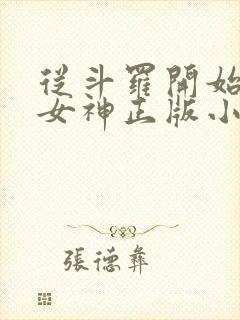 從斗羅開始
女神正版小
張德彝